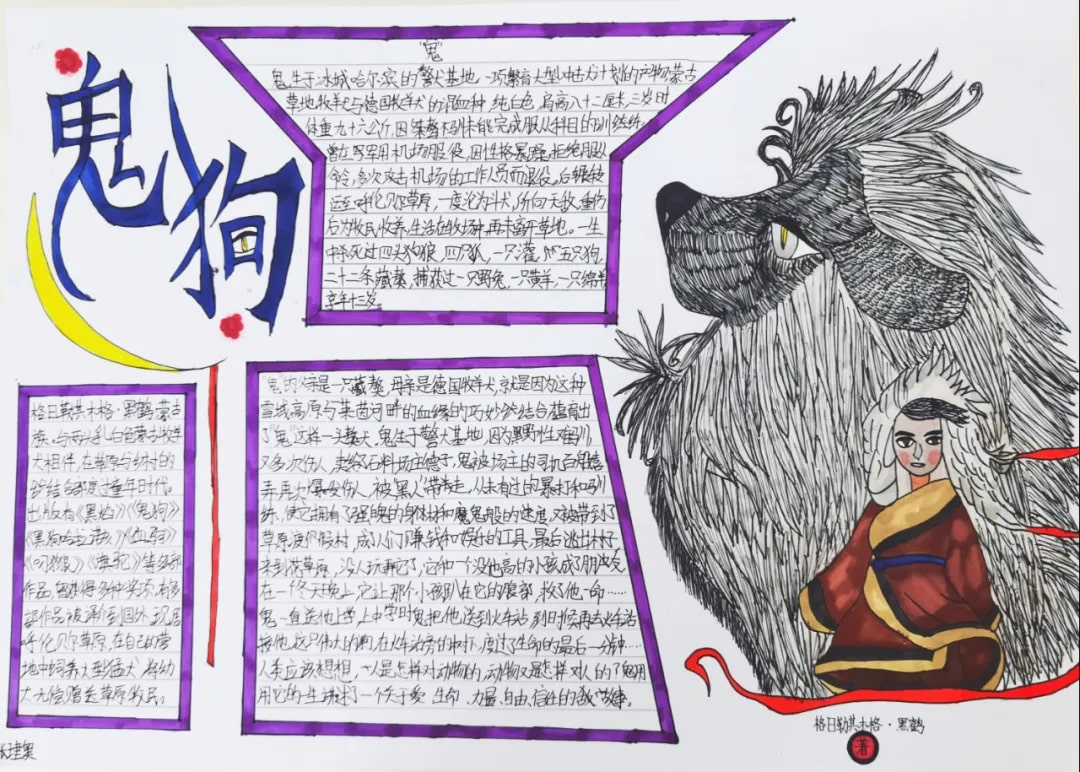 鬼狗
"鬼"
鬼生于冰城哈尔滨的警犬基地。一项繁育大型冲击犬计划的产物。蒙古
草地牧羊犬与德国牧羊犬的混血种,纯白色,肩高八十二厘米,三岁时
体重九十六公斤,因桀骜不驯未能完成服从科目的训练,
曾在 军用机场服役,因性格暴躁,拒绝服从
令,多次攻击机场的工作人员而退役。后辗转
运至呼伦贝尔草原,一度沦为斗犬,所向无敌,重伤
后为牧民收养,生活在牧场中,再未离开草地。一生
中杀死过四头狼,四只狐,一只灌,五只狗,
二十二条藏獒,捕获过一只野兔,一只黄羊,一只
享年十三岁。
格日勒其木格·黑鹤,蒙古
族。与两头乳白色蒙古牧羊
犬相伴,在草原与乡村的
结合部度过童年时代。
出版有《黑焰》《鬼狗》
《黑狗哈拉诺亥》《血驹》
《狼》《驯鹿》等多部
作品,曾获得多种奖项,有多
部作品被译介到国外,现居
呼伦贝尔草原,在自己的营
地中饲养大型猛犬,将幼
犬无偿赠送草原牧民。
"鬼"的父亲是一只藏獒,母亲是德国牧羊犬,就是因为这种
雪域高原与莱茵河畔的血缘的巧妙然结合,孕育出
了"鬼"这样一头猛犬,鬼生于警犬基地,因为野性难驯
又多次伤人,卖给石料场主德子,鬼被场主的司机百般
弄再次爆发伤人,被黑人带走,从未有过的暴打和驯
练,使它拥有了强魄的身材和魔鬼般的速度,又被带到了
草原度假村,成了人们赚钱和娱乐的工具,最后逃出村子
来到茫草原,没人玩弄它了,它和一个没他高的小孩成了朋友,
在一个冬天晚上,它让那个小孩趴在它的腹部,救了他一命……
鬼一直送他上学,上中学时鬼把他送到火车站,到时候再去火车站
接他,这只伟大的狗,在火车站旁的树下,度过了生命的最后一分钟……
人类应该想想,人是怎样对动物的,动物又是怎样对人的?鬼用
用它的一生谱写了一个关于爱、生命、力量、自由、信任的故事。
格日勒其木格·黑鹤
著